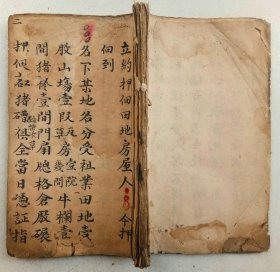 立約押佃田地房屋人
今押
佃到
名下某地名分受祖業田地壹
股山塲壹段瓦房壹院
牛欄壹
間猪
壹間門扇
格倉厫碾
押佃
猪
俱全當日憑証指
二